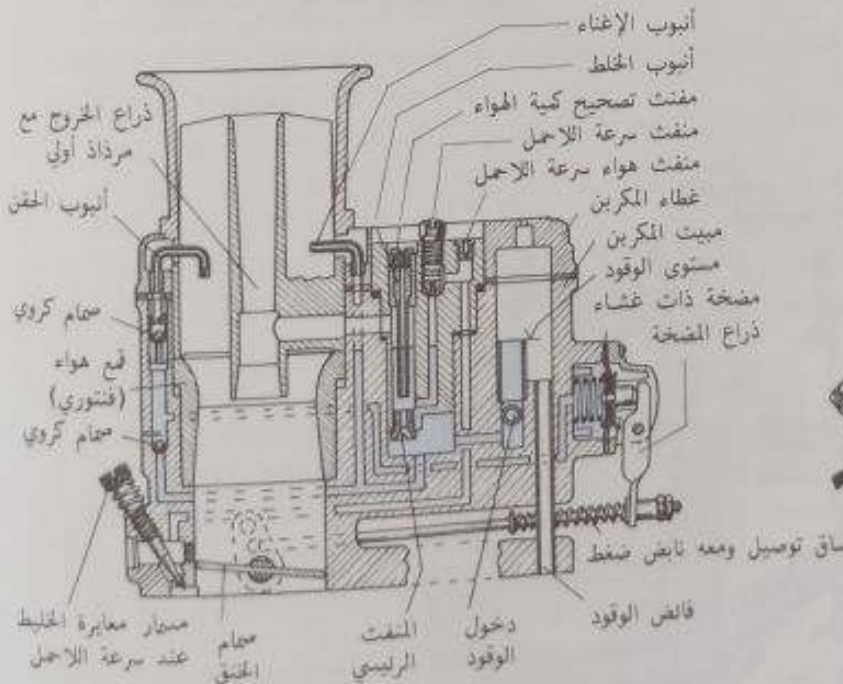 أنبوب الإغناء
أنبوب الخلط
مفتث تصحيح كمية الهواء
منفث سرعة اللاحمل
منفث هواء سرعة اللاحمل
غطاء المكربن
مبيت المكربن
مستوى الوقود
مضخة ذات غشاء
ذراع المضخة
ذراع الخروج مع
مرذاذ أولي
أنبوب الحقن
صمام كروي
قمع هواء
(فنتوري)
صمام كروي
ساق توصيل ومعه نابض ضغط
فائض الوقود
دخول
الوقود
المنفث
الرئيسي
صمام
الخنق
مسمار معايرة الخليط
عند سرعة اللاحمل